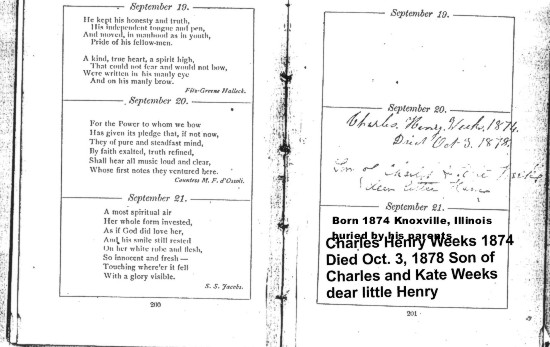 September 19.
He kept his honesty and truth,
His independent tongue and pen,
And moved, in manhood as in youth,
Pride of his fellow-men.
A kind, true heart, a spirit high,
That could not fear and would not bow,
Were written in his manly eye
And on his manly brow.
Fitz-Greene Halleck.
September 20.
For the Power to whom we bow
Has given its pledge that, if not now,
They of pure and steadfast mind,
By faith exalted, truth refined,
Shall hear all music loud and clear,
Whose first notes they ventured here.
Countess M. F. d'Ossoli.
September 21.
A most spiritual air
Her whole form invested,
As if God did love her,
And his smile still rested
On her white robe and flesh,
So innocent and fresh—
Touching where'er it fell
With a glory visible.
S. S. Jacobs.
200
September 19.
September 20.
Charles Henry Weeks, 1874.
Died Oct. 3, 1878.
Son of Charles & Kate Weeks
dear little Henry
September 21.
Born 1874 Knoxville, Illinois
buried by his parents
Charles Henry Weeks 1874
Died Oct. 3, 1878 Son of
Charles and Kate Weeks
dear little Henry
201